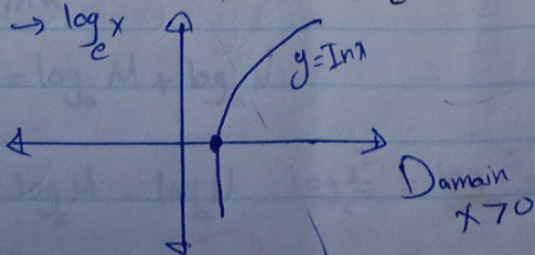 → log_e x
y=Inx
Damain
x>0